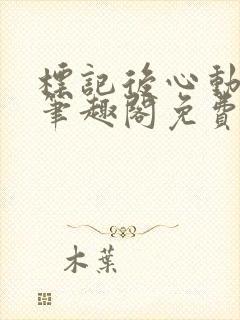 標記後心動
筆趣閣免費
木葉